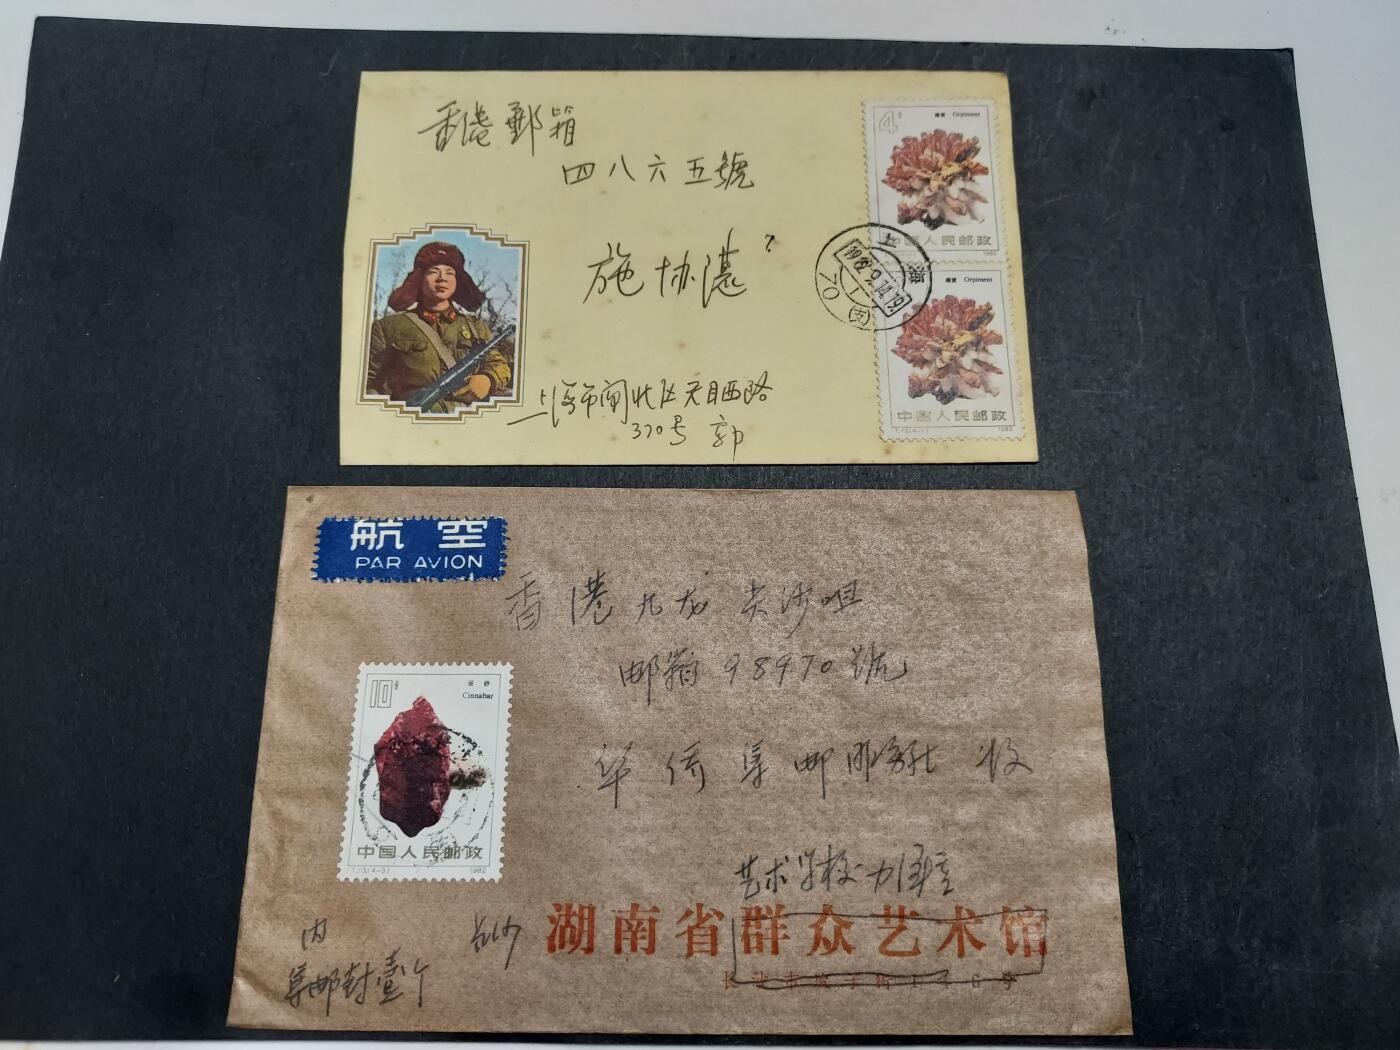 香港郵箱
四八六五號
施协湛
上海市闸北区天目西路
370号 郭
4分
雄黄 Orpiment
中国人民邮政
1982
雄黄 Orpiment
中国人民邮政
T.73.(4-1) 1982
上海
1982.9.14.19
70(支)
航空
PAR AVION
香港九龙尖沙咀
邮箱98970號
华侨集邮服務社 收
10分
辰砂
Cinnabar
中国人民邮政
T.73.(4-3) 1982
艺术学校
长沙 湖南省群众艺术馆
内
集邮封壹个